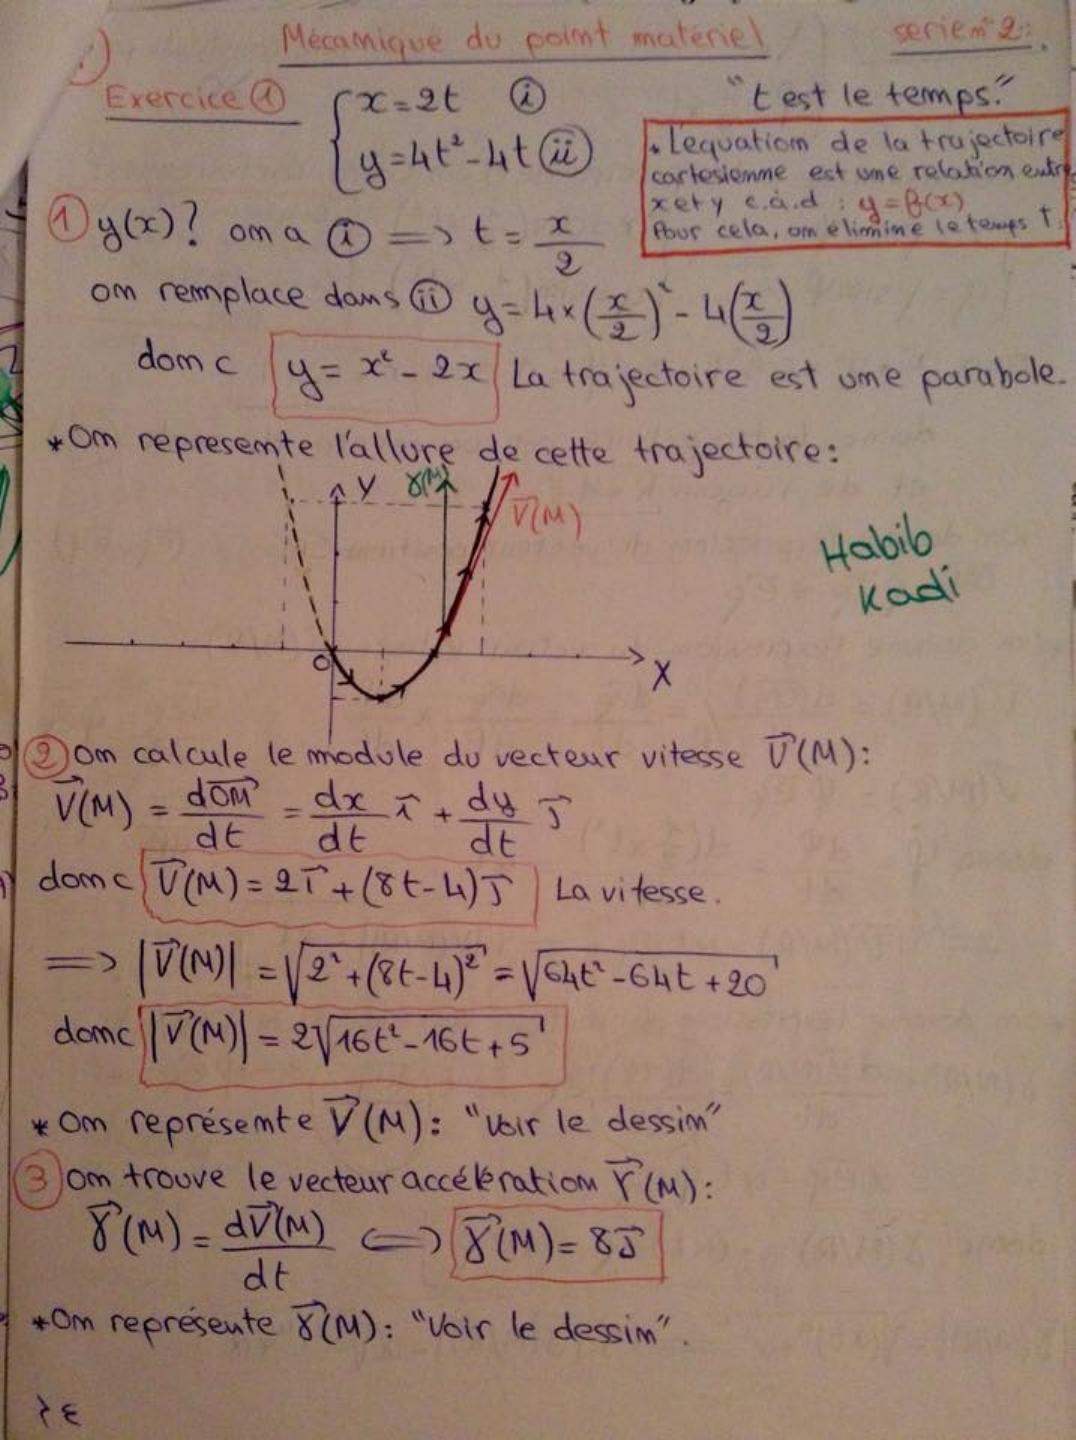 Mécanique du point matériel
serie n°2:
Exercice ①
{ x = 2t (i)
y = 4t² - 4t (ii)
"t est le temps."
• L'equation de la trajectoire
cartesienne est une relation entre
x et y c.à.d : y = f(x)
Pour cela, on élimine le temps t.
① y(x)? on a (i) => t = x/2
on remplace dans (ii) y = 4×(x/2)² - 4(x/2)
donc y = x² - 2x La trajectoire est une parabole.
*On represente l'allure de cette trajectoire:
Y
γ(M)
V⃗(M)
O
X
Habib
Kadi
② on calcule le module du vecteur vitesse V⃗(M):
V⃗(M) = dOM⃗/dt = dx/dt i⃗ + dy/dt j⃗
donc V⃗(M) = 2i⃗ + (8t-4)j⃗ La vitesse.
=> |V⃗(M)| = √(2² + (8t-4)²) = √(64t² - 64t + 20)
donc |V⃗(M)| = 2√(16t² - 16t + 5)
*On représente V⃗(M): "Voir le dessin"
③ on trouve le vecteur accélération γ⃗(M):
γ⃗(M) = dV⃗(M)/dt <=> γ⃗(M) = 8j⃗
*On représente γ⃗(M): "Voir le dessin".